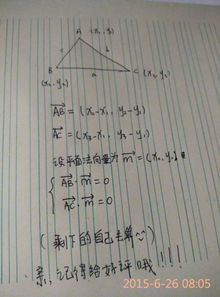 A (x₁, y₁)
c b
B a C (x₃, y₃)
(x₂, y₂)
AB = (x₂-x₁, y₂-y₁)
AC = (x₃-x₁, y₃-y₁)
设平面法向量为 m = (x₀, y₀)
AB · m = 0
AC · m = 0
(剩下的自己去算)
亲,记得给好评哦!!!
2015-6-26 08:05